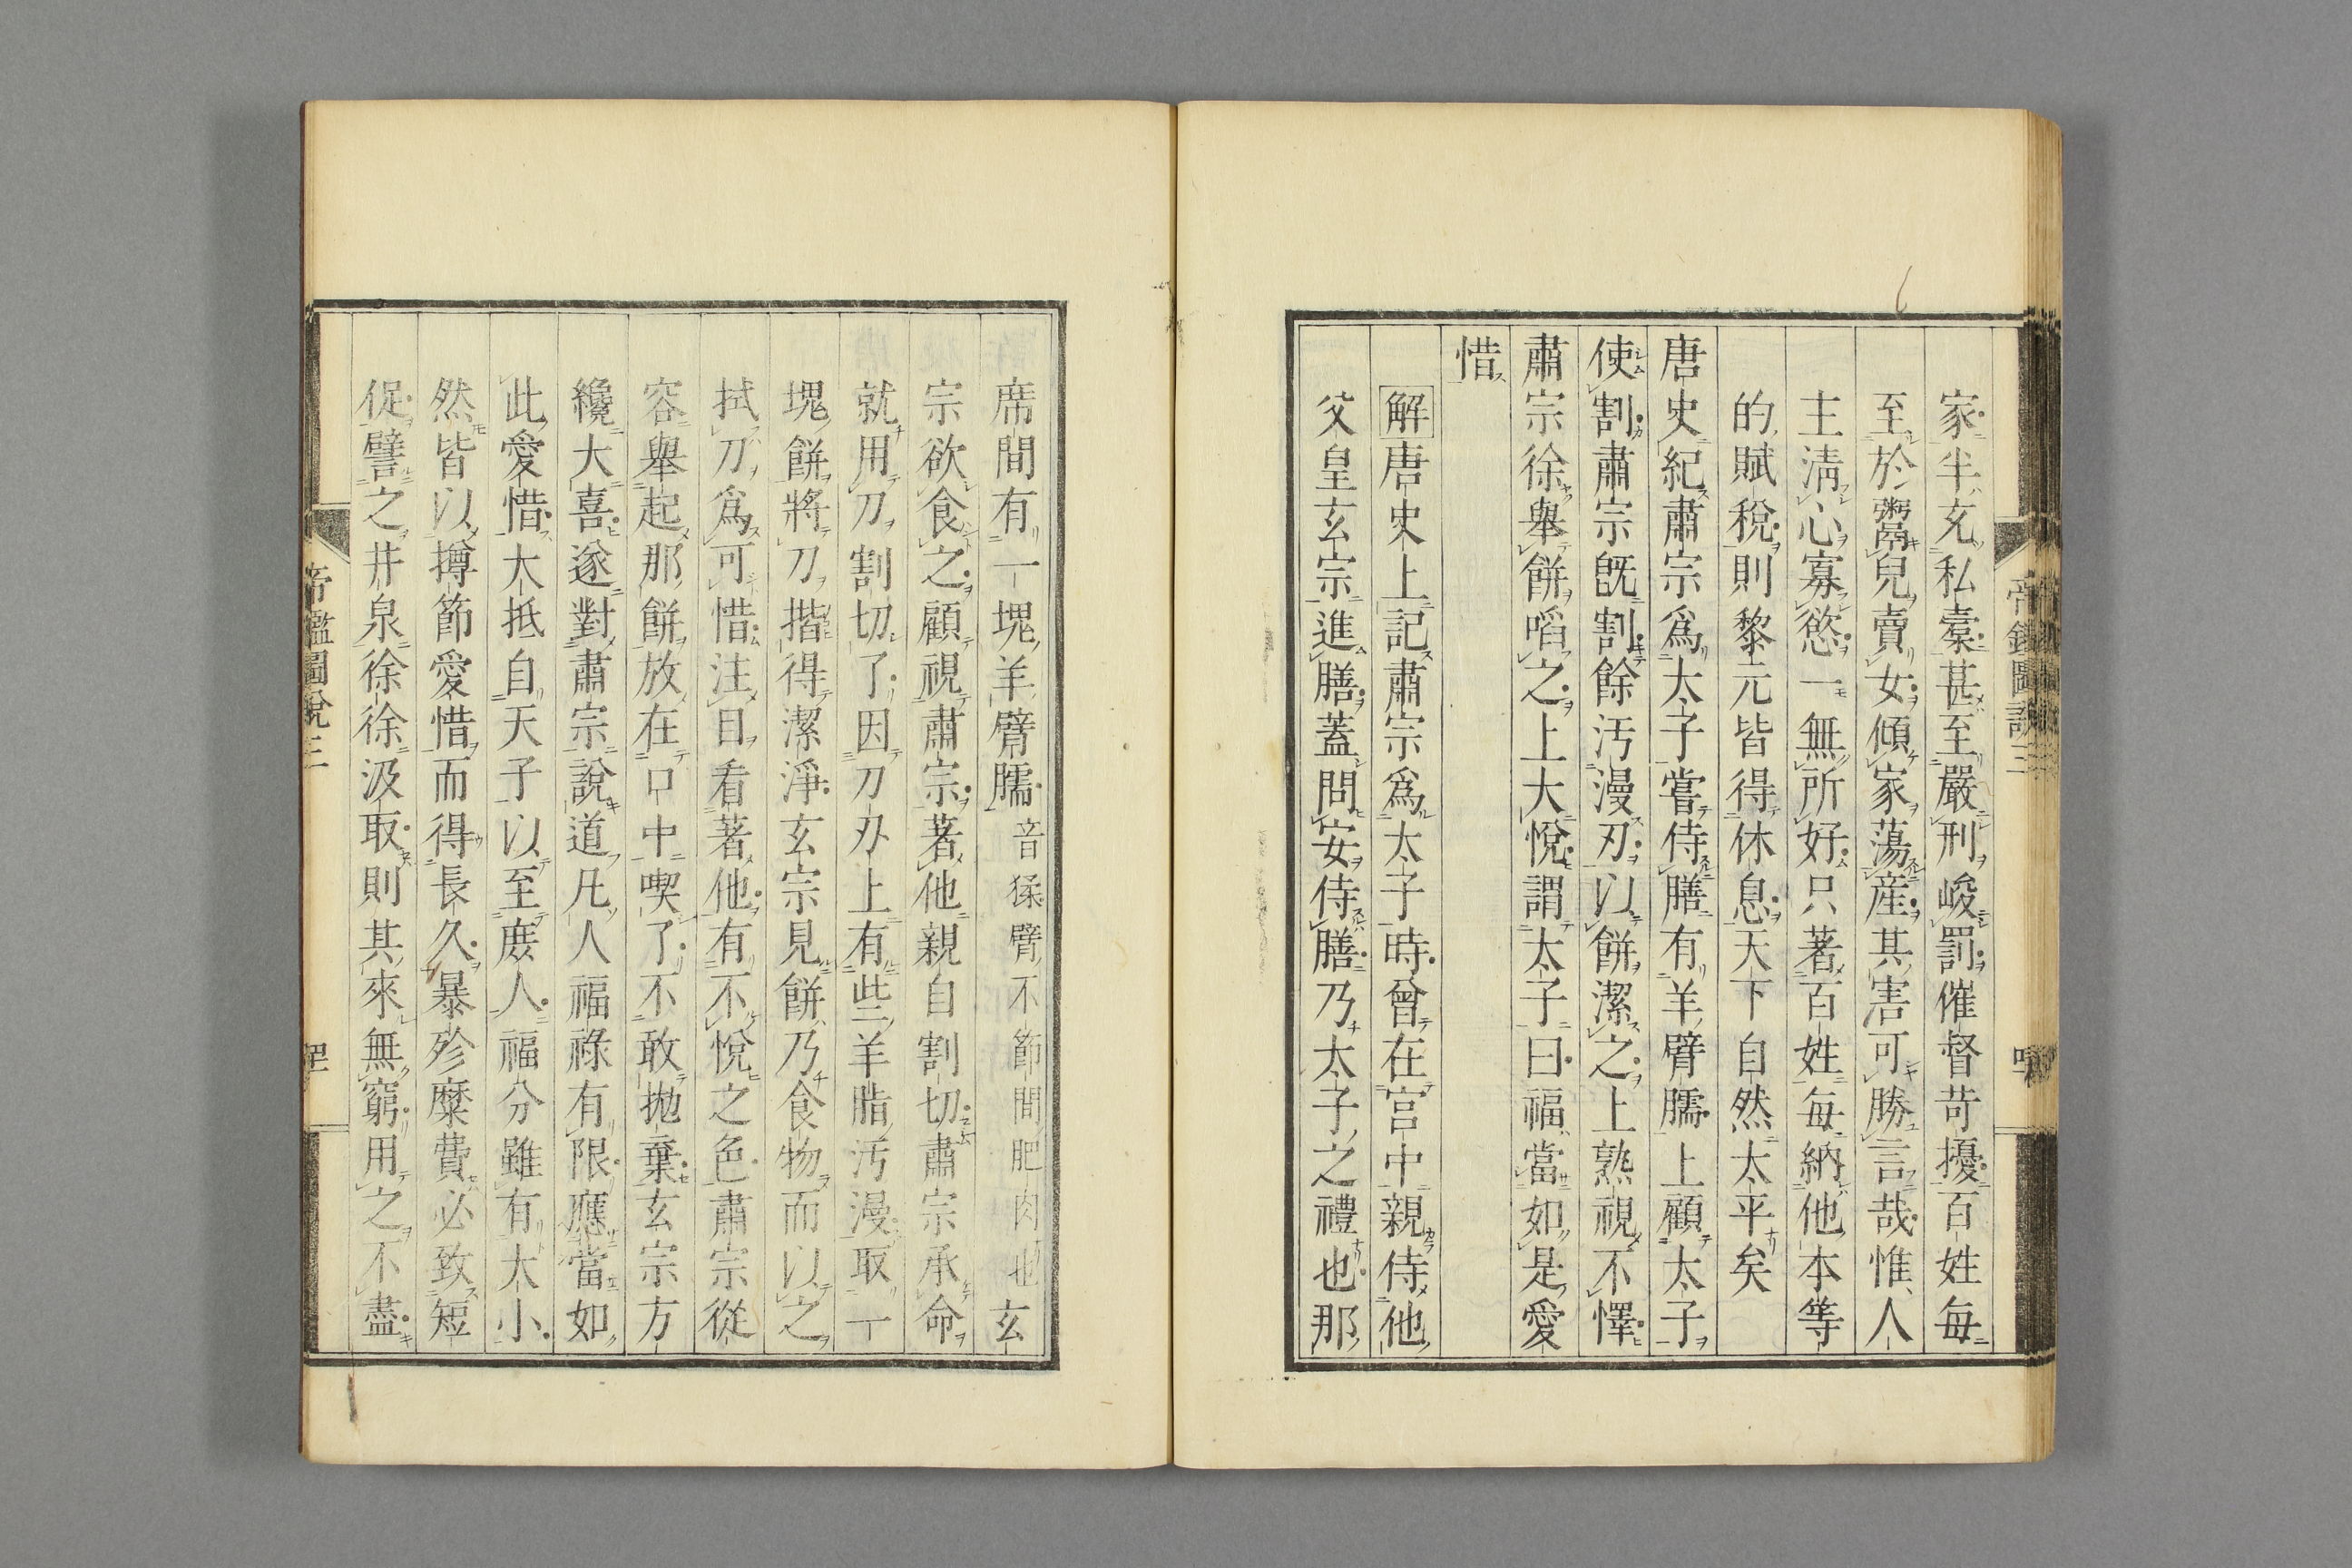 家半充私橐甚至嚴刑峻罰催督苛擾百姓每
至於鬻兒賣女傾家蕩産其害可勝言哉惟人
主淸心寡慾一無所好只著百姓每納他本等
的賦稅則黎元皆得休息天下自然太平矣
唐史紀肅宗爲太子嘗侍膳有羊臂臑上顧太子
使割肅宗旣割餘汚漫刃以餅潔之上熟視不懌
肅宗徐舉餅啗之上大悅謂太子曰福當如是愛
惜
解唐史上記肅宗爲太子時曾在宮中親侍他
父皇玄宗進膳蓋問安侍膳乃太子之禮也那
席間有一塊羊臂臑音猱臂不節間肥肉也玄
宗欲食之顧視肅宗著他親自割切肅宗承命
就用刀割切了因刀刃上有些羊脂汚漫取一
塊餅將刀揩得潔淨玄宗見餅乃食物而以之
拭刀爲可惜注目看著他有不悅之色肅宗從
容舉起那餅放在口中喫了不敢拋棄玄宗方
纔大喜遂對肅宗說道凡人福祿有限應當如
此愛惜大抵自天子以至庻人福分雖有大小
然皆以撙節愛惜而得長久暴殄糜費必致短
促譬之井泉徐徐汲取則其來無窮用之不盡
帝鑑圖說三